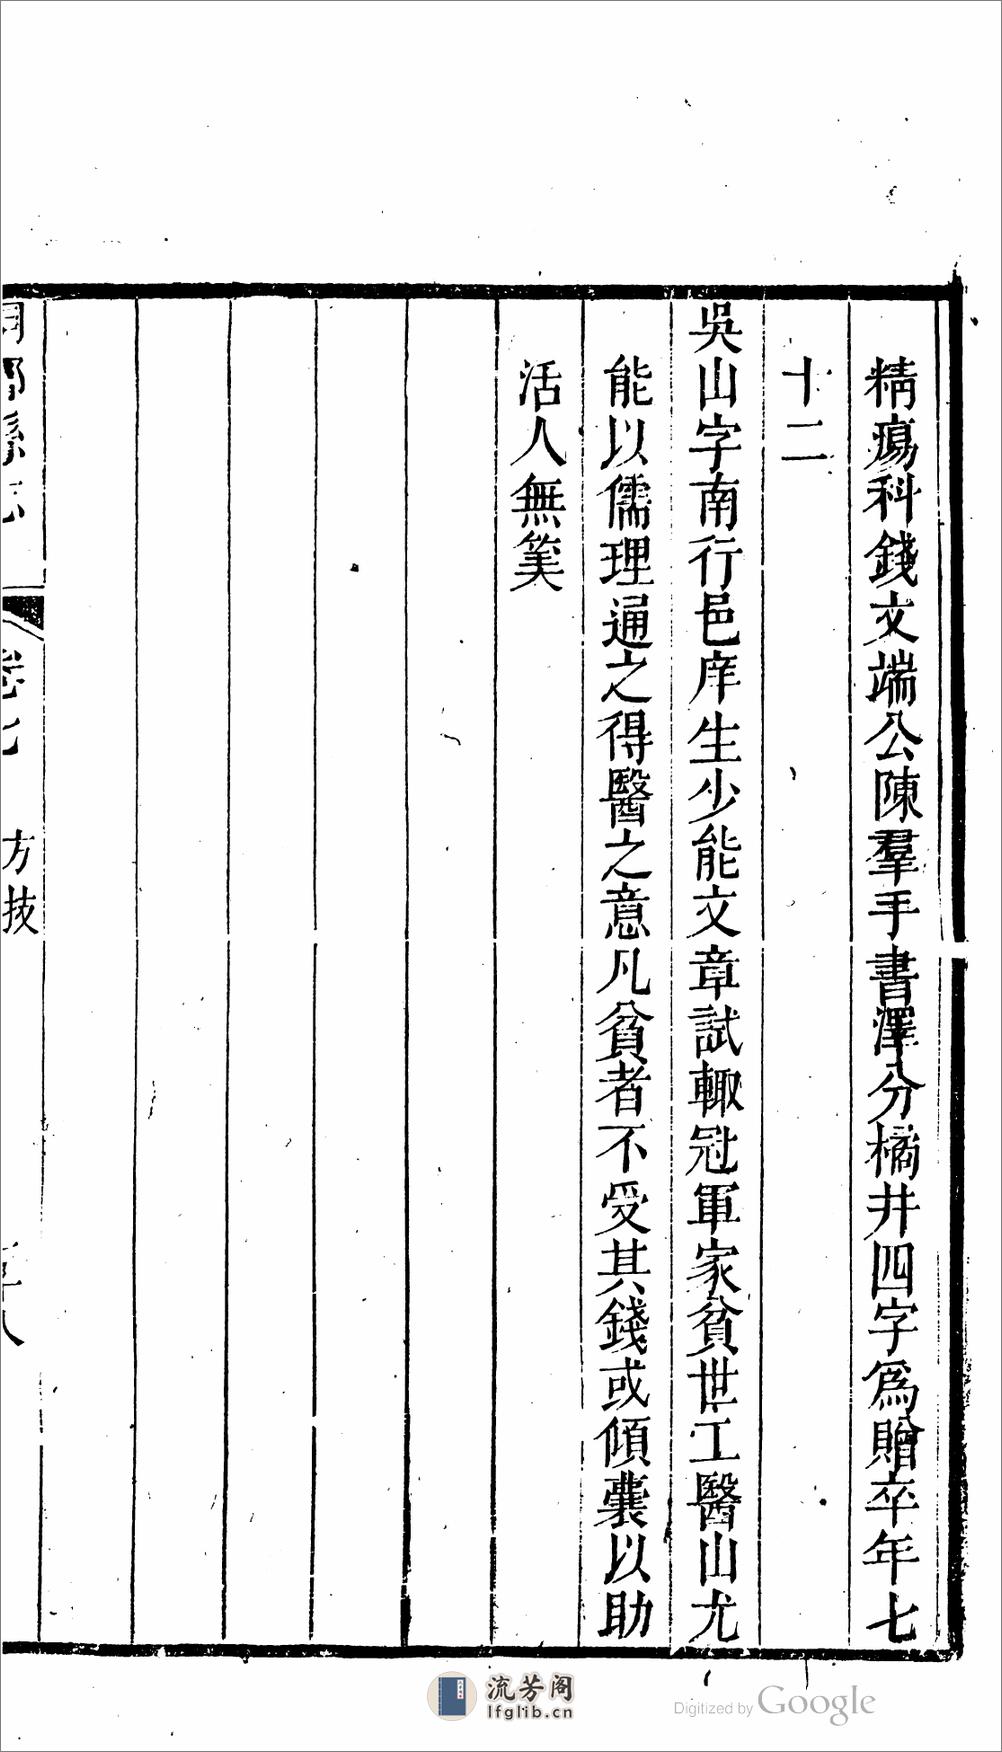 精瘍科錢文端公陳羣手書澤分橘井四字爲贈卒年七
十二
吳山字南行邑庠生少能文章試輙冠軍家貧世工醫山尤
能以儒理通之得醫之意凡貧者不受其錢或傾囊以助
活人無筭
桐鄉縣志
卷七
方技
流芳阁
lfglib.cn
Digitized by Google